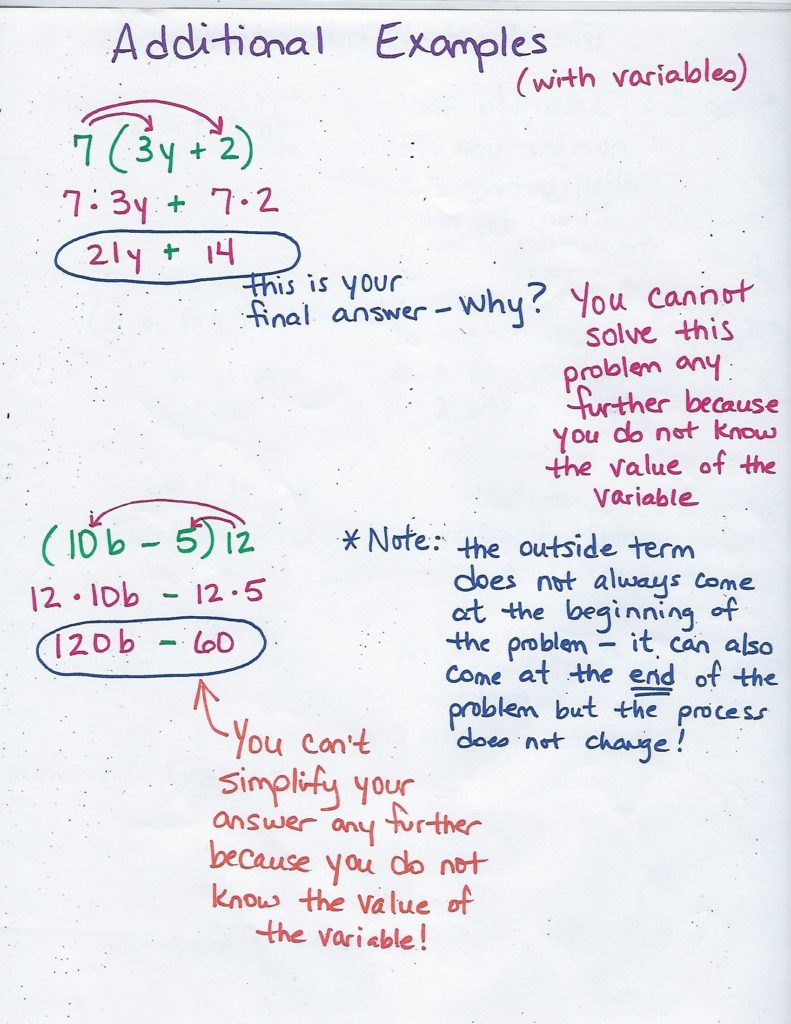 Additional Examples
(with variables)
7(3y + 2)
7·3y + 7·2
21y + 14
this is your
final answer – Why?
You cannot
solve this
problem any
further because
you do not know
the value of the
variable
(10b – 5)12
12·10b – 12·5
120b – 60
*Note: the outside term
does not always come
at the beginning of
the problem – it can also
come at the end of the
problem but the process
does not change!
You can't
simplify your
answer any further
because you do not
know the value of
the variable!